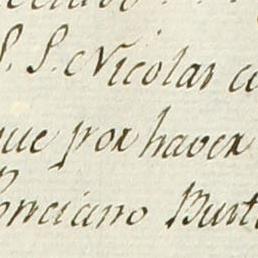 S. S. Nicolas
que por haver
Ponciano Bust